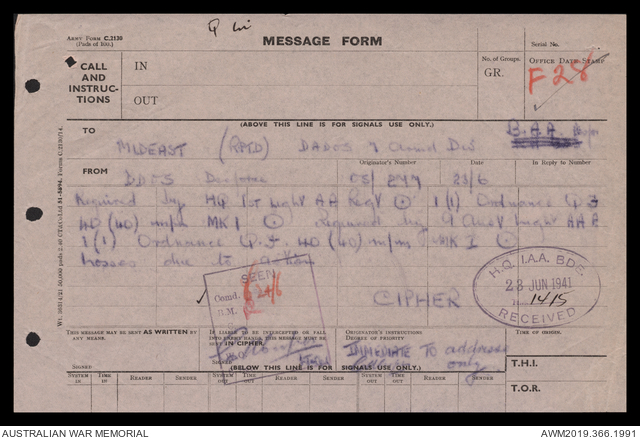 Q
Army Form C.2130
(Pads of 100.)
MESSAGE FORM
Serial No.
CALL
AND
INSTRUC-
TIONS
IN
OUT
No. of Groups.
GR.
Office Date Stamp
F28
(ABOVE THIS LINE IS FOR SIGNALS USE ONLY.)
TO
MIDEAST (RPTD) DADOS 7 Armd Div
B.A.A.
FROM
Originator's Number
Date
In Reply to Number
DDOS
OS/277
23/6
Required by HQ 1st Light AA Regt 1(1) Ordnance Q.F.
40 (40) m/m MK I Required by 9 Aust Light AA
1(1) Ordnance Q.F. 40 (40) m/m MK I
losses due to action
SEEN
Comd.
B.M.
CIPHER
H.Q. I.A.A. BDE.
23 JUN 1941
1415
RECEIVED
THIS MESSAGE MAY BE SENT AS WRITTEN BY
ANY MEANS.
IF LIABLE TO BE INTERCEPTED OR FALL
INTO ENEMY HANDS, THIS MESSAGE MUST BE
SENT IN CIPHER.
ORIGINATOR'S INSTRUCTIONS
DEGREE OF PRIORITY
Time of Origin.
IMMEDIATE TO address
only
Signed
(BELOW THIS LINE IS FOR SIGNALS USE ONLY.)
T.H.I.
T.O.R.
System In
Time In
Reader
Sender
System Out
Time Out
Reader
Sender
System Out
Time Out
Reader
Sender
AUSTRALIAN WAR MEMORIAL
AWM2019.366.1991